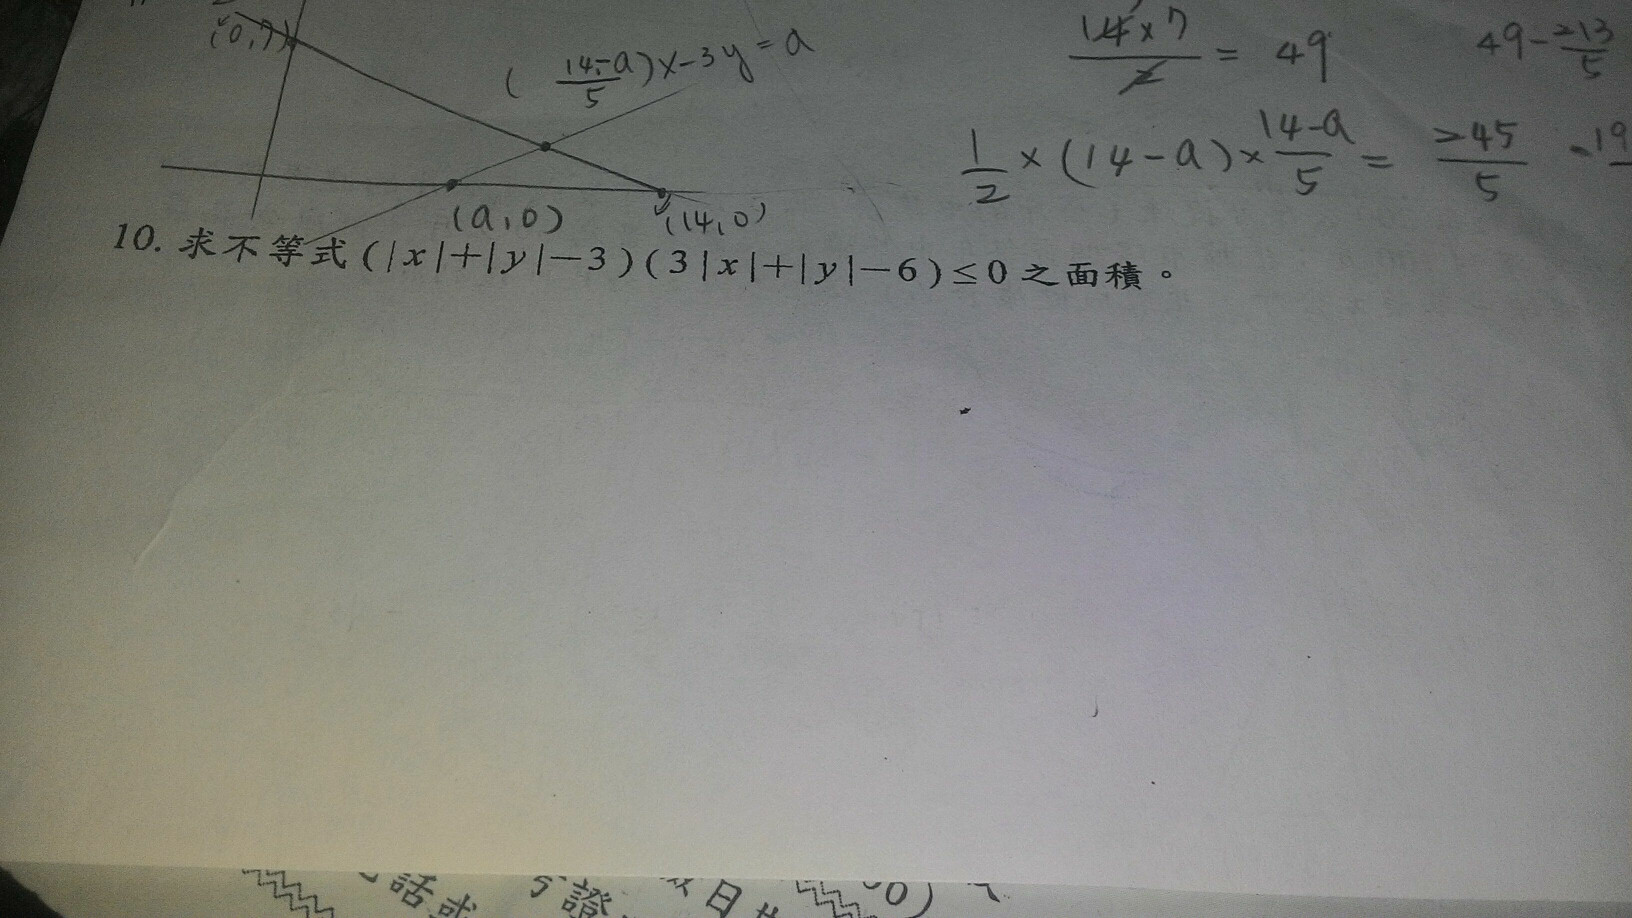 (0,7)
(14-a/5)x-3y=a
14×7/2 = 49
49-213/5
1/2×(14-a)×14-a/5 = 245/5
(a,0)
(14,0)
10. 求不等式(|x|+|y|-3)(3|x|+|y|-6)≤0之面積。
話
證
日
0)